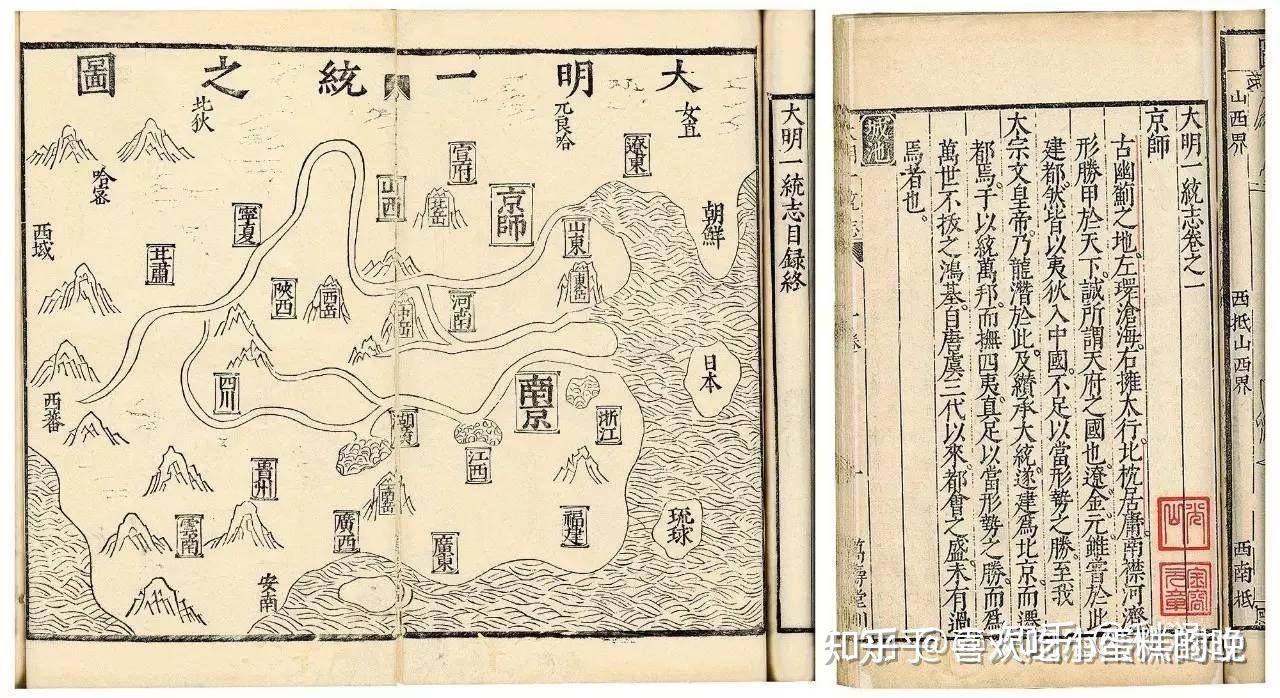 大明一統之圖
女直
兀良哈
北狄
遼東
宣府
京師
山西
北岳
哈密
寧夏
西域
甘肅
朝鮮
山東
東岳
陝西
西岳
中岳
河南
日本
南京
浙江
四川
西番
湖廣
江西
貴州
南岳
雲南
廣西
廣東
福建
琉球
安南
大明一統志目録終
大明一統志卷之一
京師
古幽薊之地左環滄海右擁太行北枕居庸南襟河濟
形勝甲於天下誠所謂天府之國也遼金元雖嘗於此
建都然皆以夷狄入中國不足以當形勢之勝至我
太宗文皇帝乃龍潛於此及纘承大統遂建為北京而遷
都焉于以統萬邦而撫四夷真足以當形勢之勝而為
萬世不拔之鴻基自唐虞三代以來都會之盛未有過
焉者也
城池
萬壽堂刊
山西界
西抵山西界
西南抵
知乎 @喜欢吃小蛋糕的晚